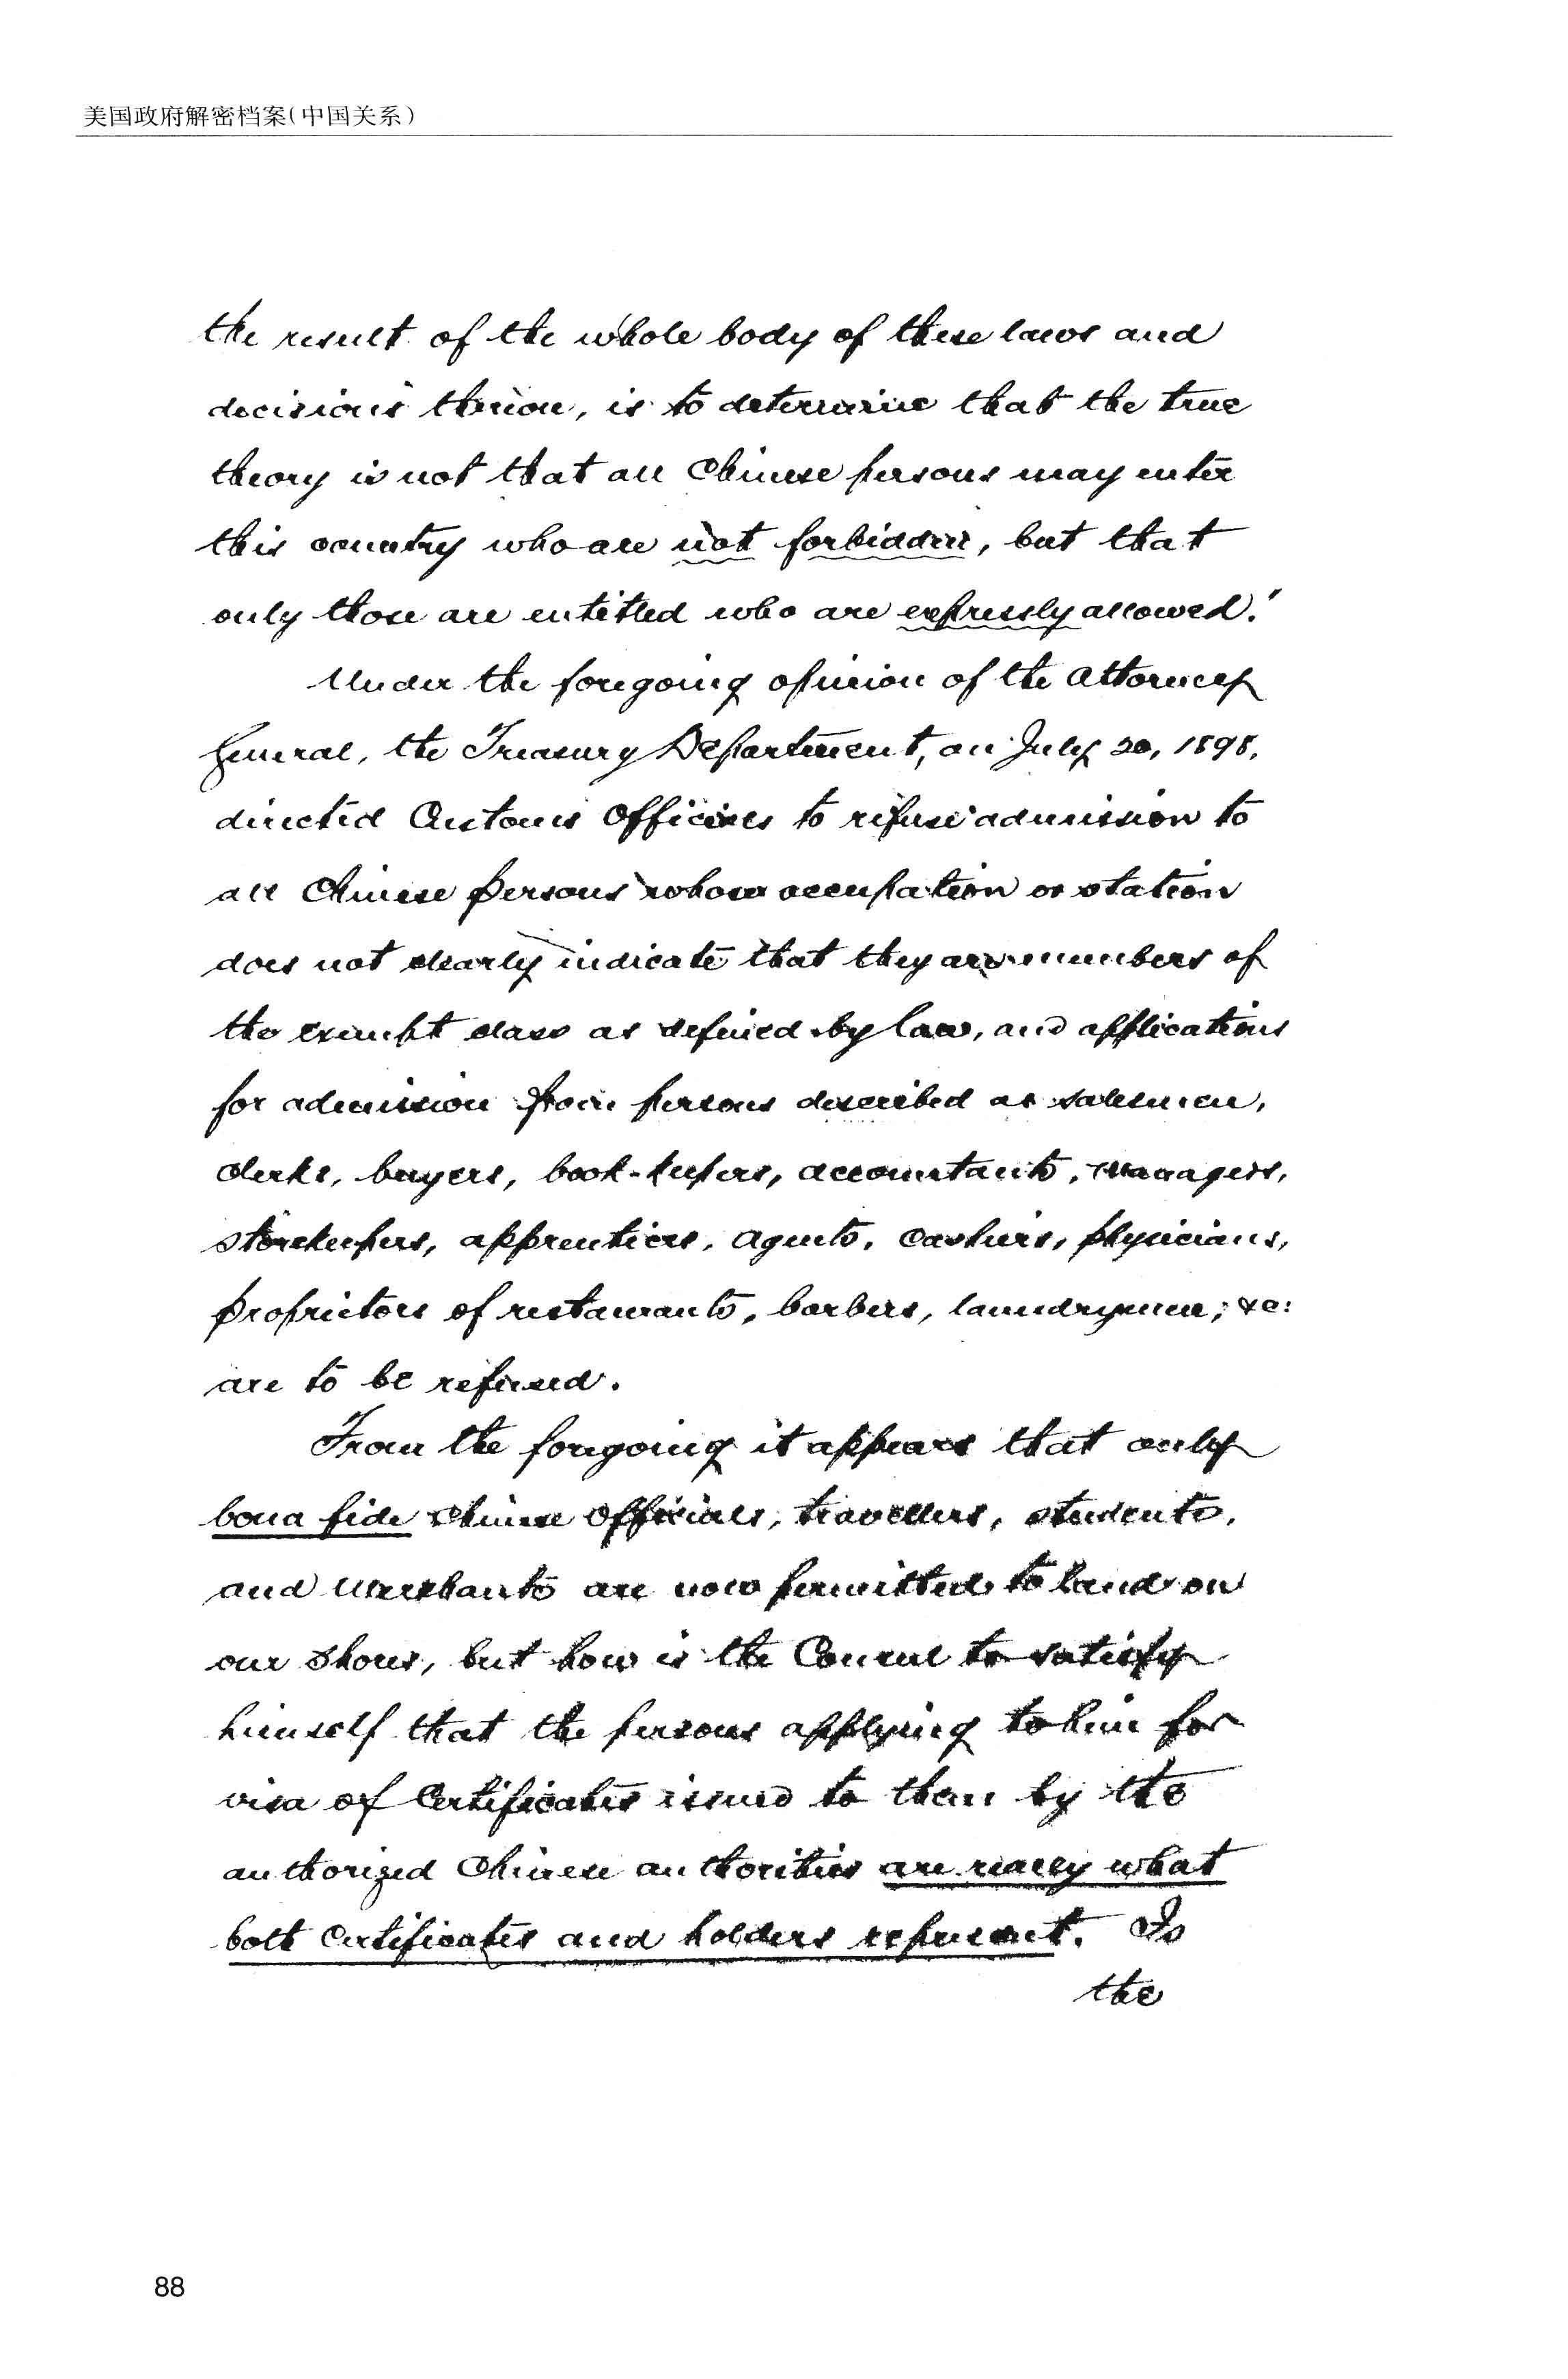 美国政府解密档案(中国关系)
the result of the whole body of these laws and
decisions thereon, is to determine that the true
theory is not that all Chinese persons may enter
this country who are not forbidden, but that
only those are entitled who are expressly allowed."
Under the foregoing opinion of the Attorney
General, the Treasury Department, on July 20, 1898,
directed Customs Officers to refuse admission to
all Chinese persons whose occupation or station
does not clearly indicate that they are members of
the exempt class as defined by law, and applications
for admission from persons described as salesmen,
clerks, buyers, book-keepers, accountants, managers,
storekeepers, apprentices, agents, cashiers, physicians,
proprietors of restaurants, barbers, laundrymen, &c:
are to be refused.
From the foregoing it appears that only
bona fide Chinese Officials, travellers, students,
and Merchants are now permitted to land on
our shores, but how is the Consul to satisfy
himself that the persons applying to him for
visa of Certificates issued to them by the
authorized Chinese authorities are really what
both Certificates and holders represent. Is
the
88